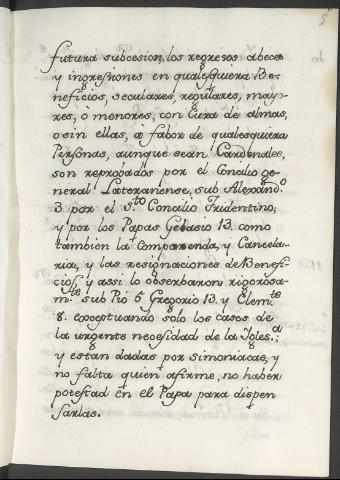 5
futura subcesion, los regresos abeces
y ingressiones en qualesquiera Be-
neficios, seculares, regulares, mayo-
res, ò menores, con Cura de almas,
o sin ellas, à fabor de qualesquiera
Personas, aunque sean Cardenales,
son reprobados por el Concilio ge-
neral Lateranense, sub Alexand.o
3 por el S.to Concilio Tridentino,
y por los Papas Gelasio 13. como
tambien la Compaenda, y Cancela-
ria, y las resignaciones de Benefi-
cios, y assi lo observaron rigorosa-
m.te sub Pio 5 Gregorio 13. y Clem.te
8. exceptuando solo los casos de
la urgente necesidad de la Igles.a;
y estan dadas por simoniacas, y
no falta quien afirme, no haber
potestad en el Papa para dispen
sarlas.